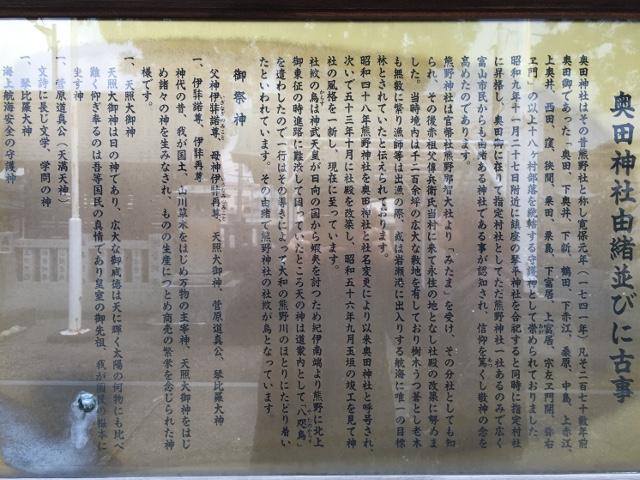 奥田神社由緒並びに古事
奥田神社はその昔熊野社と称し寛保元年（一七四一年）凡そ二百七十数年前
奥田郷であった「奥田、下奥井、下新、鶴田、下赤江、桑原、中島、上赤江、
上奥井、西田、窪、狭間、粟田、粟島、下富居、上富居、宗左ヱ門開、
ヱ門」の以上十八ヶ村部落を統轄する守護神として崇められておりました。
昭和九年十一月二十七日附近に鎮座の琴平神社を合祀すると同時に指定村社
に昇格し、奥田郷に在りて指定村社としてただ熊野神社一社あるのみで広く
富山市民からも由緒ある神社である事が認知され、信仰を篤くし敬神の念を
高めたのであります。
熊野神社は官幣社熊野那智大社より「みたま」を受け、その分社としても知
られ、その後赤祖父傳兵衛氏当村に来て永住の地となし社殿の改築に努めま
した。当時境内は千二百余坪の広大な敷地を有しており樹木うつ蒼とし老木
も無数に繁り漁師等は出漁の際、或は岩瀬港に出入りする航海に唯一の目標
林とされていたと伝えられております。
昭和四十八年熊野神社を奥田神社と社名変更により以来奥田神社と呼号され、
次いで五十三年十月に社殿を改築し、昭和五十六年九月玉垣の竣工を見て神
社の風格を一新し、現在に至っています。
社紋の烏は神武天皇が日向の国から蝦夷を討つため紀伊南端より熊野に北上
御東征の神進路に難渋して困っていたところ天の神は道案内として「八咫烏」
を遣わしたので一行はその導きによって大和の熊野川のほとりにたどり着い
たといわれています。その由緒で熊野神社の社紋が烏となっています。
御祭神
父神伊弉諾尊、母神伊弉冉尊、天照大御神、菅原道真公、琴比羅大神
一、伊弉諾尊、伊弉冉尊
神代の昔、我が国土、山川草木をはじめ万物の主宰神、天照大御神をはじ
め諸々の神を生みなされ、ものの生産につとめ商売の繁栄を念じられた神
様です。
一、天照大御神
天照大御神は日の神であり、広大な御威徳は天に輝く太陽の何物にも比べ
難く仰ぎ奉るのは吾等国民の真情であり皇室の御先祖、我が国民の根本に
生す神
一、菅原道真公（天満天神）
文詩に長じ文学、学問の神
一、琴比羅大神
海上航海安全の守護神